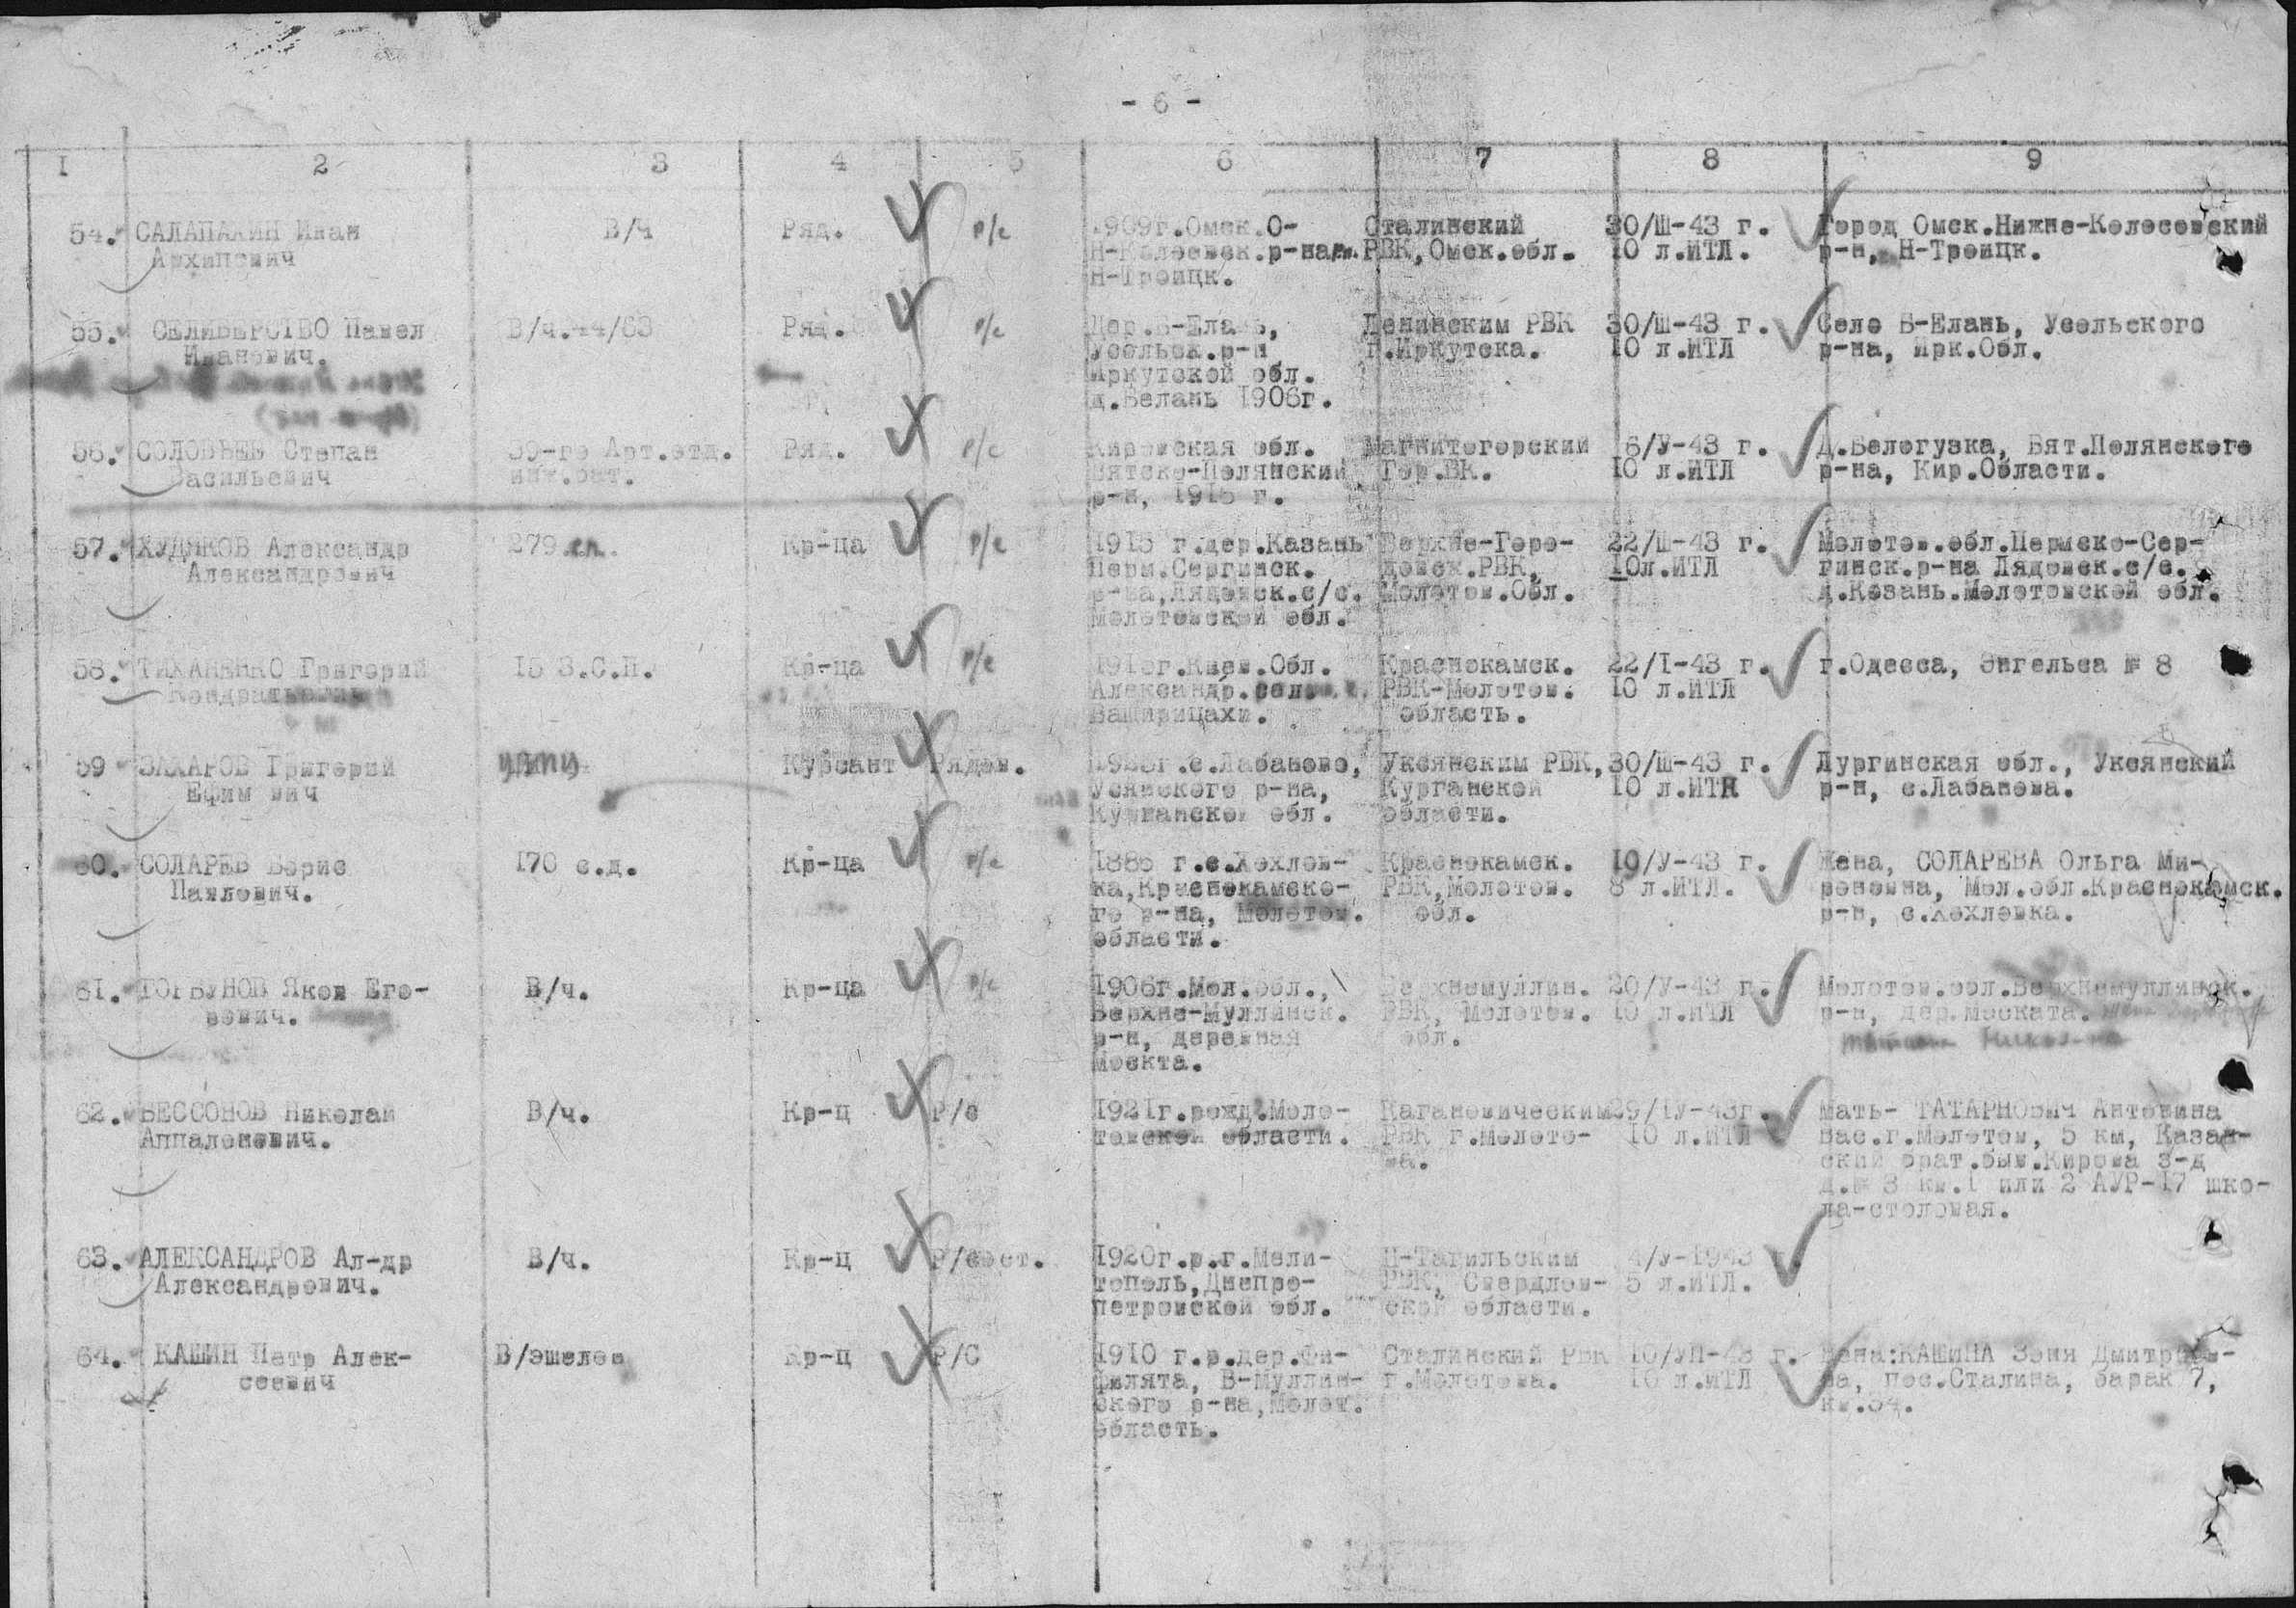 - 6 -
I 2 3 4 5 6 7 8 9
54. САЛАПАХИН Иван В/Ч Ряд. р/с 1909г.Омск.О- Сталинский 30/Ш-43 г. Город Омск.Нижне-Колосовский
Архипович Н-Колосовск.р-на РВК,Омск.обл. 10 л.ИТЛ. р-н, Н-Троицк.
Н-Троицк.
55. СЕЛИВЕРСТВО Павел В/ч.44/63 Ряд. р/с Дер.Б-Елань, Ленинским РВК 30/Ш-43 г. Село Б-Елань, Усольского
Иванович. Усольск.р-н г.Иркутска. 10 л.ИТЛ р-на, Ирк.Обл.
Иркутской обл.
д.Белань 1906г.
56. СОЛОВЬЕВ Степан 39-го Арт.отд. Ряд. р/с Кировская обл. Магнитогорский 6/У-43 г. Д.Белогузка, Вят.Полянского
Васильевич инж.бат. Вятско-Полянский Гор.ВК. 10 л.ИТЛ р-на, Кир.Области.
р-н, 1915 г.
57. ХУДЯКОВ Александр 279 сп. Кр-ца р/с 1915 г.дер.Казань Верхне-Горо- 22/Ш-43 г. Молотов.обл.Пермско-Сер-
Александрович Перм.Сергинск. довск.РВК, 10л.ИТЛ гинск.р-на Лядовск.с/с.
р-на,Лядовск.с/с. Молотов.Обл. д.Козань.Молотовской обл.
Молотовской обл.
58. ТИХАНЕНКО Григорий 15 З.С.П. Кр-ца р/с Киев.Обл. Краснокамск. 22/I-43 г. г.Одесса, Энгельса № 8
Александр. РВК-Молотов. 10 л.ИТЛ
область.
59 ЗАХАРОВ Григорий Курсант Рядов. с.Лабаново, Уксянским РВК, 30/Ш-43 г. Дургинская обл., Уксянский
Ефим вич Усянского р-на, Курганской 10 л.ИТН р-н, с.Лабанова.
Курганской обл. области.
60. СОЛАРЕВ Борис 170 с.д. Кр-ца р/с 1885 г.с.Хохлов- Краснокамск. 19/У-43 г. Жена, СОЛАРЕВА Ольга Ми-
Павлович. ка,Краснокамско- РВК,Молотов. 8 л.ИТЛ. роновна, Мол.обл.Краснокамск.
го р-на, Молотов. обл. р-н, с.Хохловка.
области.
61. ГОРБУНОВ Яков Его- В/ч. Кр-ца р/с 1906г.Мол.обл., Верхнемуллин. 20/У-43 г. Молотов.обл.Верхнемуллинск.
рович. Верхне-Муллинск. РВК, Молотов. 10 л.ИТЛ р-н, дер.Моската.
р-н, деревная обл.
Москта.
62. БЕССОНОВ Николай В/ч. Кр-ц Р/с 1921г.рожд.Моло- Кагановическим 29/IУ-43г. Мать- ТАТАРНОВИЧ Антонина
Аппалонович. товской области. РВК г.Молото- 10 л.ИТЛ Вас.г.Молотов, 5 км, Казан-
ва. ский врат.быв.Кирова з-д
д.№ 3 кв.1 или 2 АУР-17 шко-
ла-столовая.
63. АЛЕКСАНДРОВ Ал-др В/ч. Кр-ц Р/сост. 1920г.р.г.Мели- Н-Тагильским 4/У-1943
Александрович. тополь,Днепро- РВК, Свердлов- 5 л.ИТЛ.
петровской обл. ской области.
64. КАШИН Петр Алек- В/эшелон Кр-ц Р/С 1910 г.р.дер.Фи- Сталинский РВК 10/УП-43 г. Жена:КАШИНА Зоня Дмитриев-
сеевич филята, В-Муллин- г.Молотова. 10 л.ИТЛ на, пос.Сталина, барак 7,
ского р-на,Молот. кв.34.
область.